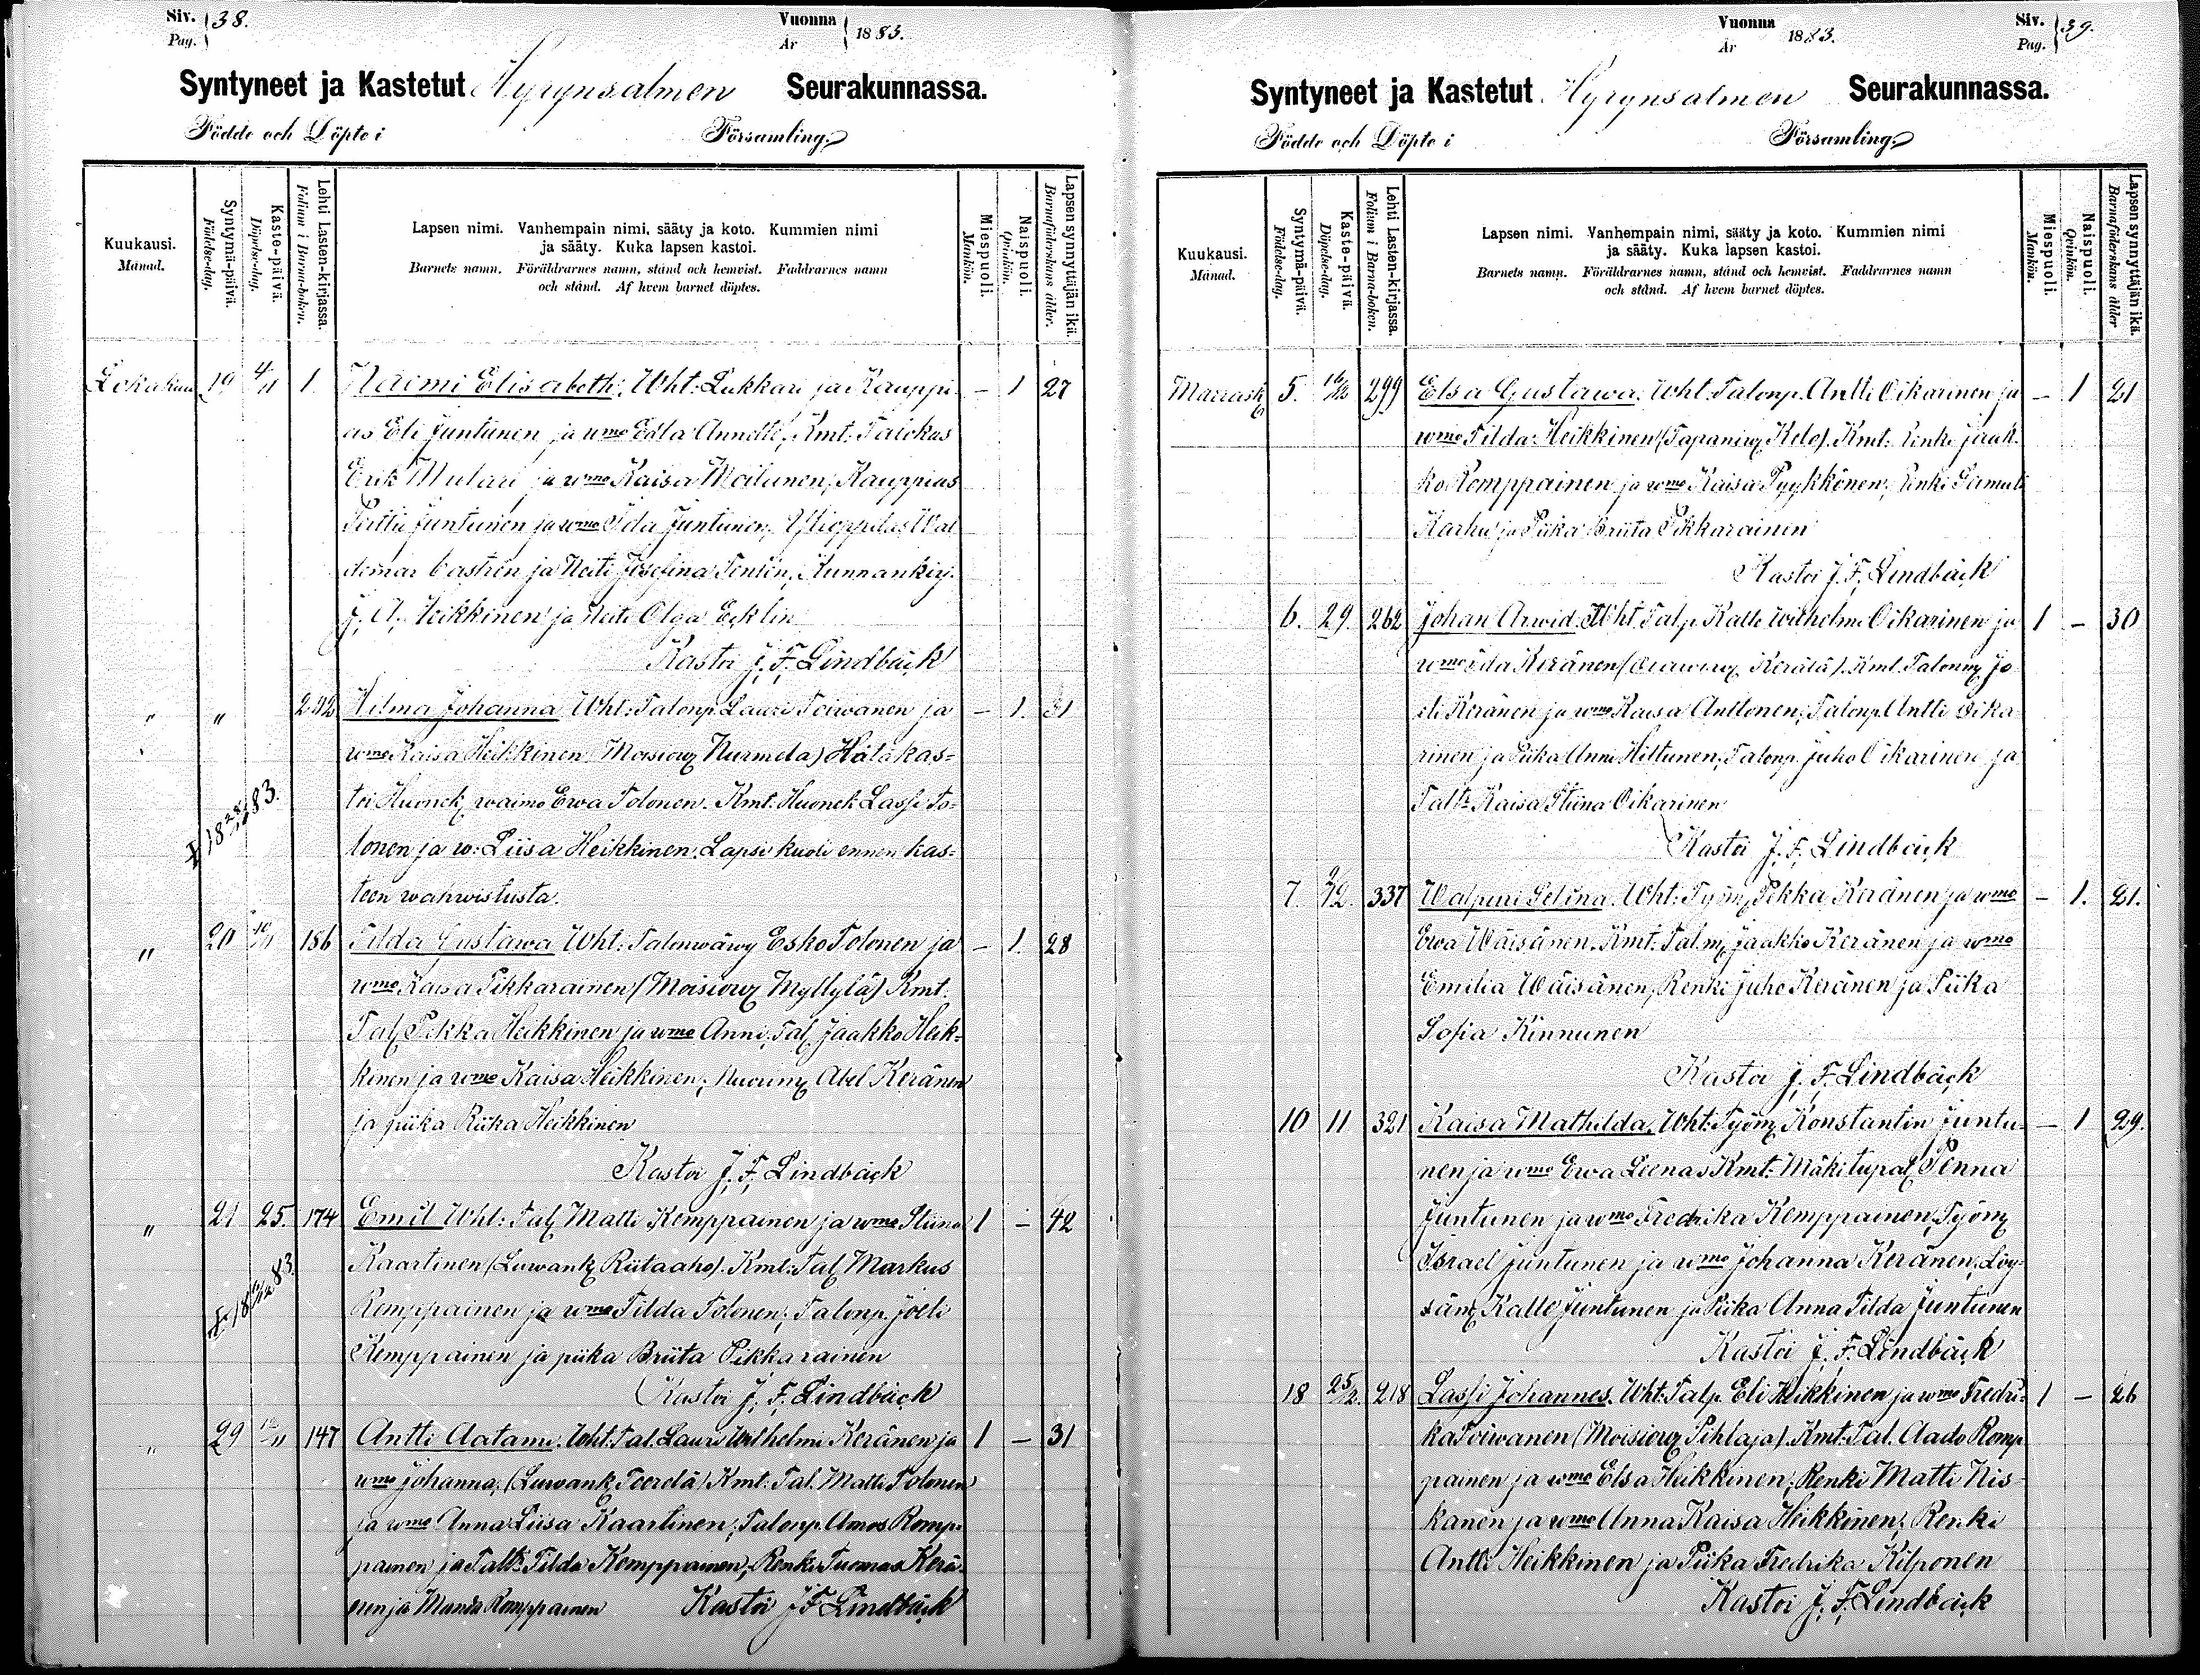 Siv. 38. Vuonna 1883.
Pag. År
Syntyneet ja Kastetut Hyrynsalmen Seurakunnassa.
Födde och Döpte i Församling.
Kuukausi. Månad.
Syntymä-päivä. Födelse-dag.
Kaste-päivä. Döpelse-dag.
Lehti Lasten-kirjassa. Folium i Barna-boken.
Lapsen nimi. Vanhempain nimi, sääty ja koto. Kummien nimi
ja sääty. Kuka lapsen kastoi.
Barnets namn. Föräldrarnes namn, stånd och hemvist. Faddrarnes namn
och stånd. Af hvem barnet döptes.
Miespuoli. Mankön.
Naispuoli. Qvinkön.
Lapsen synnyttäjän ikä. Barnaföderskans ålder.
Lokakuu 19 4/11 1. Naimi Elisabeth. Wht: Lukkari ja Kauppi- — 1 27
as Eli Juntunen ja wmo Edla Annette, Kmt: Talokas
Erik Mulari ja wmo Kaisa Moilanen, Kauppias
Perttu Juntunen ja wmo Ida Juntunen, Ylioppilas Wal
demar Castrén ja Neiti Josefina Tentin, Kunnankirj.
J. A. Heikkinen ja Neiti Olga Ecklin
Kastoi J. F. Lindbäck
" " 242 Hilma Johanna Wht: Talonp Lauri Toiwanen ja — 1. 31
wmo Kaisa Heikkinen (Moisiow Nurmela) Hätäkas=
toi Huonek waimo Ewa Tolonen. Kmt: Huonek Lassi To=
lonen ja w: Liisa Heikkinen. Lapsi kuoli ennen kas=
teen wahwistusta.
" 20 10/11 156 Tilda Gustawa Wht: Talonwäwy Esko Tolonen ja — 1. 28
wmo Kaisa Pikkarainen (Moisiow Myllylä) Kmt:
Tal Pekka Heikkinen ja wmo Anni, Tal Jaakko Heik=
kinen ja wmo Kaisa Heikkinen, Nuorum Abel Keränen
ja piika Riika Heikkinen
Kastoi J. F. Lindbäck
" 21 25. 174 Emil Wht: Tal Matti Kemppainen ja wmo Stiina 1 — 42
Kaartinen (Luwank Riitaaho). Kmt: Tal Markus
Romppainen ja wmo Tilda Tolonen, Talonp. Joeli
Kemppainen ja piika Briita Pikkarainen
Kastoi J. F. Lindbäck
" 29 147 Antti Aatami. Wht: Tal. Lauri Wilhelmi Keränen ja 1 — 31
wmo Johanna, (Luwank Teerelä) Kmt: Tal. Matti Tolonen
ja wmo Anna Liisa Kaartinen, Talonp. Amos Romp-
painen ja Taltr Tilda Kemppainen, Renki Tuomas Kerä-
nen ja Manda Romppainen Kastoi J F Lindbäck
Vuonna 1883. Siv. 39.
År Pag.
Syntyneet ja Kastetut Hyrynsalmen Seurakunnassa.
Födde och Döpte i Församling.
Kuukausi. Månad.
Syntymä-päivä. Födelse-dag.
Kaste-päivä. Döpelse-dag.
Lehti Lasten-kirjassa. Folium i Barna-boken.
Lapsen nimi. Vanhempain nimi, sääty ja koto. Kummien nimi
ja sääty. Kuka lapsen kastoi.
Barnets namn. Föräldrarnes namn, stånd och hemvist. Faddrarnes namn
och stånd. Af hvem barnet döptes.
Miespuoli. Mankön.
Naispuoli. Qvinkön.
Lapsen synnyttäjän ikä. Barnaföderskans ålder
Marrask 5. 16/12 299 Elsa Gustawa. Wht: Talonp. Antti Oikarinen ja — 1 21
wmo Tilda Heikkinen (Tapaniw Kelo). Kmt: Renki Jaak-
ko Kemppainen ja wmo Kaisa Pyykkönen, Renki Samuli
Karhu ja Piika Briita Pikkarainen
Kastoi J. F. Lindbäck
6. 29. 262 Johan Arwid. Wht: Talp Kalle Wilhelmi Oikarinen ja 1 — 30
wmo Ida Keränen ( Kerälä). Kmt. Talonm Jo
eli Keränen ja wmo Kaisa Anttonen, Talonp. Antti Oika
rinen ja Piika Anni Hiltunen, Talonp. Juho Oikarinen ja
Taltr Kaisa Stiina Oikarinen
Kastoi J. F. Lindbäck
7. 337 Walpuri Selina. Wht: Työm Pekka Keränen ja wmo — 1. 21.
Ewa Wäisänen. Kmt: Tal.m. Jaakko Keränen ja wmo
Emilia Wäisänen, Renki Juho Keränen ja Piika
Sofia Kinnunen
Kastoi J. F. Lindbäck
10 11 321 Kaisa Mathilda. Wht: Työm Konstantin Juntu- — 1 29.
nen ja wmo Ewa Leena Kmt: Mäkitupal Penna
Juntunen ja wmo Fredrika Kemppainen, Työm
Israel Juntunen ja wmo Johanna Keränen, Löy-
säm Kalle Juntunen ja Piika Anna Tilda Juntunen
Kastoi J. F. Lindbäck
18 25/12. 218 Lassi Johannes. Wht: Talp. Eli Heikkinen ja wmo Fredri- 1 — 26
ka Toiwanen (Moisiow Pihlaja). Kmt: Tal. Aado Romp
painen ja wmo Elsa Heikkinen, Renki Matti Kis-
kanen ja wmo Anna Kaisa Heikkinen, Renki
Antti Heikkinen ja Piika Fredrika Kilponen
Kastoi J. F. Lindbäck